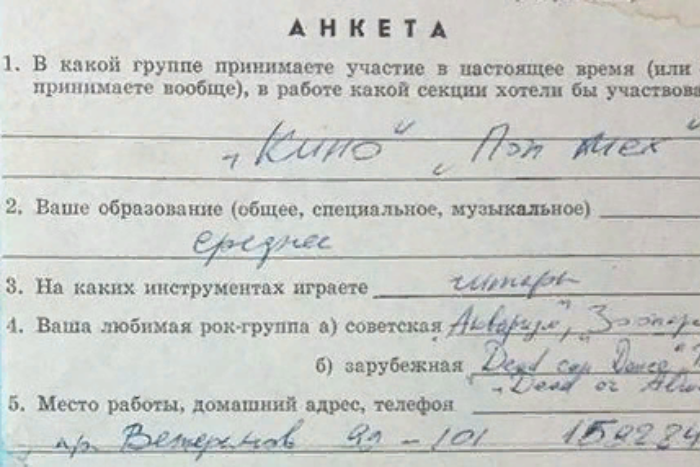 АНКЕТА
1. В какой группе принимаете участие в настоящее время (или
принимаете вообще), в работе какой секции хотели бы участвова
„Кино“ „Поп мех“
2. Ваше образование (общее, специальное, музыкальное)
среднее
3. На каких инструментах играете гитары
4. Ваша любимая рок-группа а) советская „Аквариум“, Зоопарк
б) зарубежная „Dead can Dance“
„Dead or Aliv
5. Место работы, домашний адрес, телефон
пр. Ветеранов 99 - 101